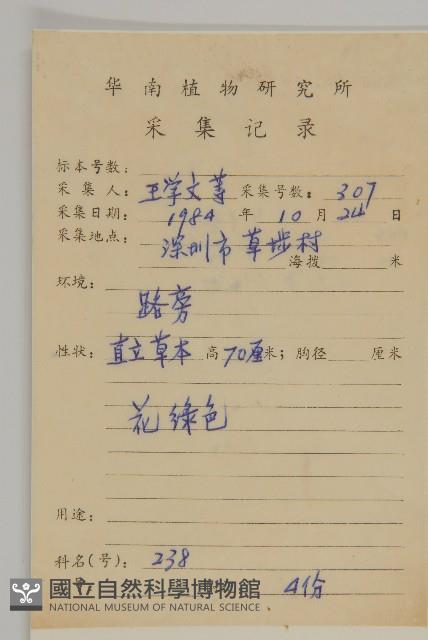 华南植物研究所
采集记录
标本号数：
采集人：王学文等 采集号数：307
采集日期：1984 年 10 月 24 日
采集地点：深圳市草埗村
海拨 米
环境：
路旁
性状：直立草本 高70厘米；胸径 厘米
花绿色
用途：
科名(号)：238
4份
國立自然科學博物館
NATIONAL MUSEUM OF NATURAL SCIENCE